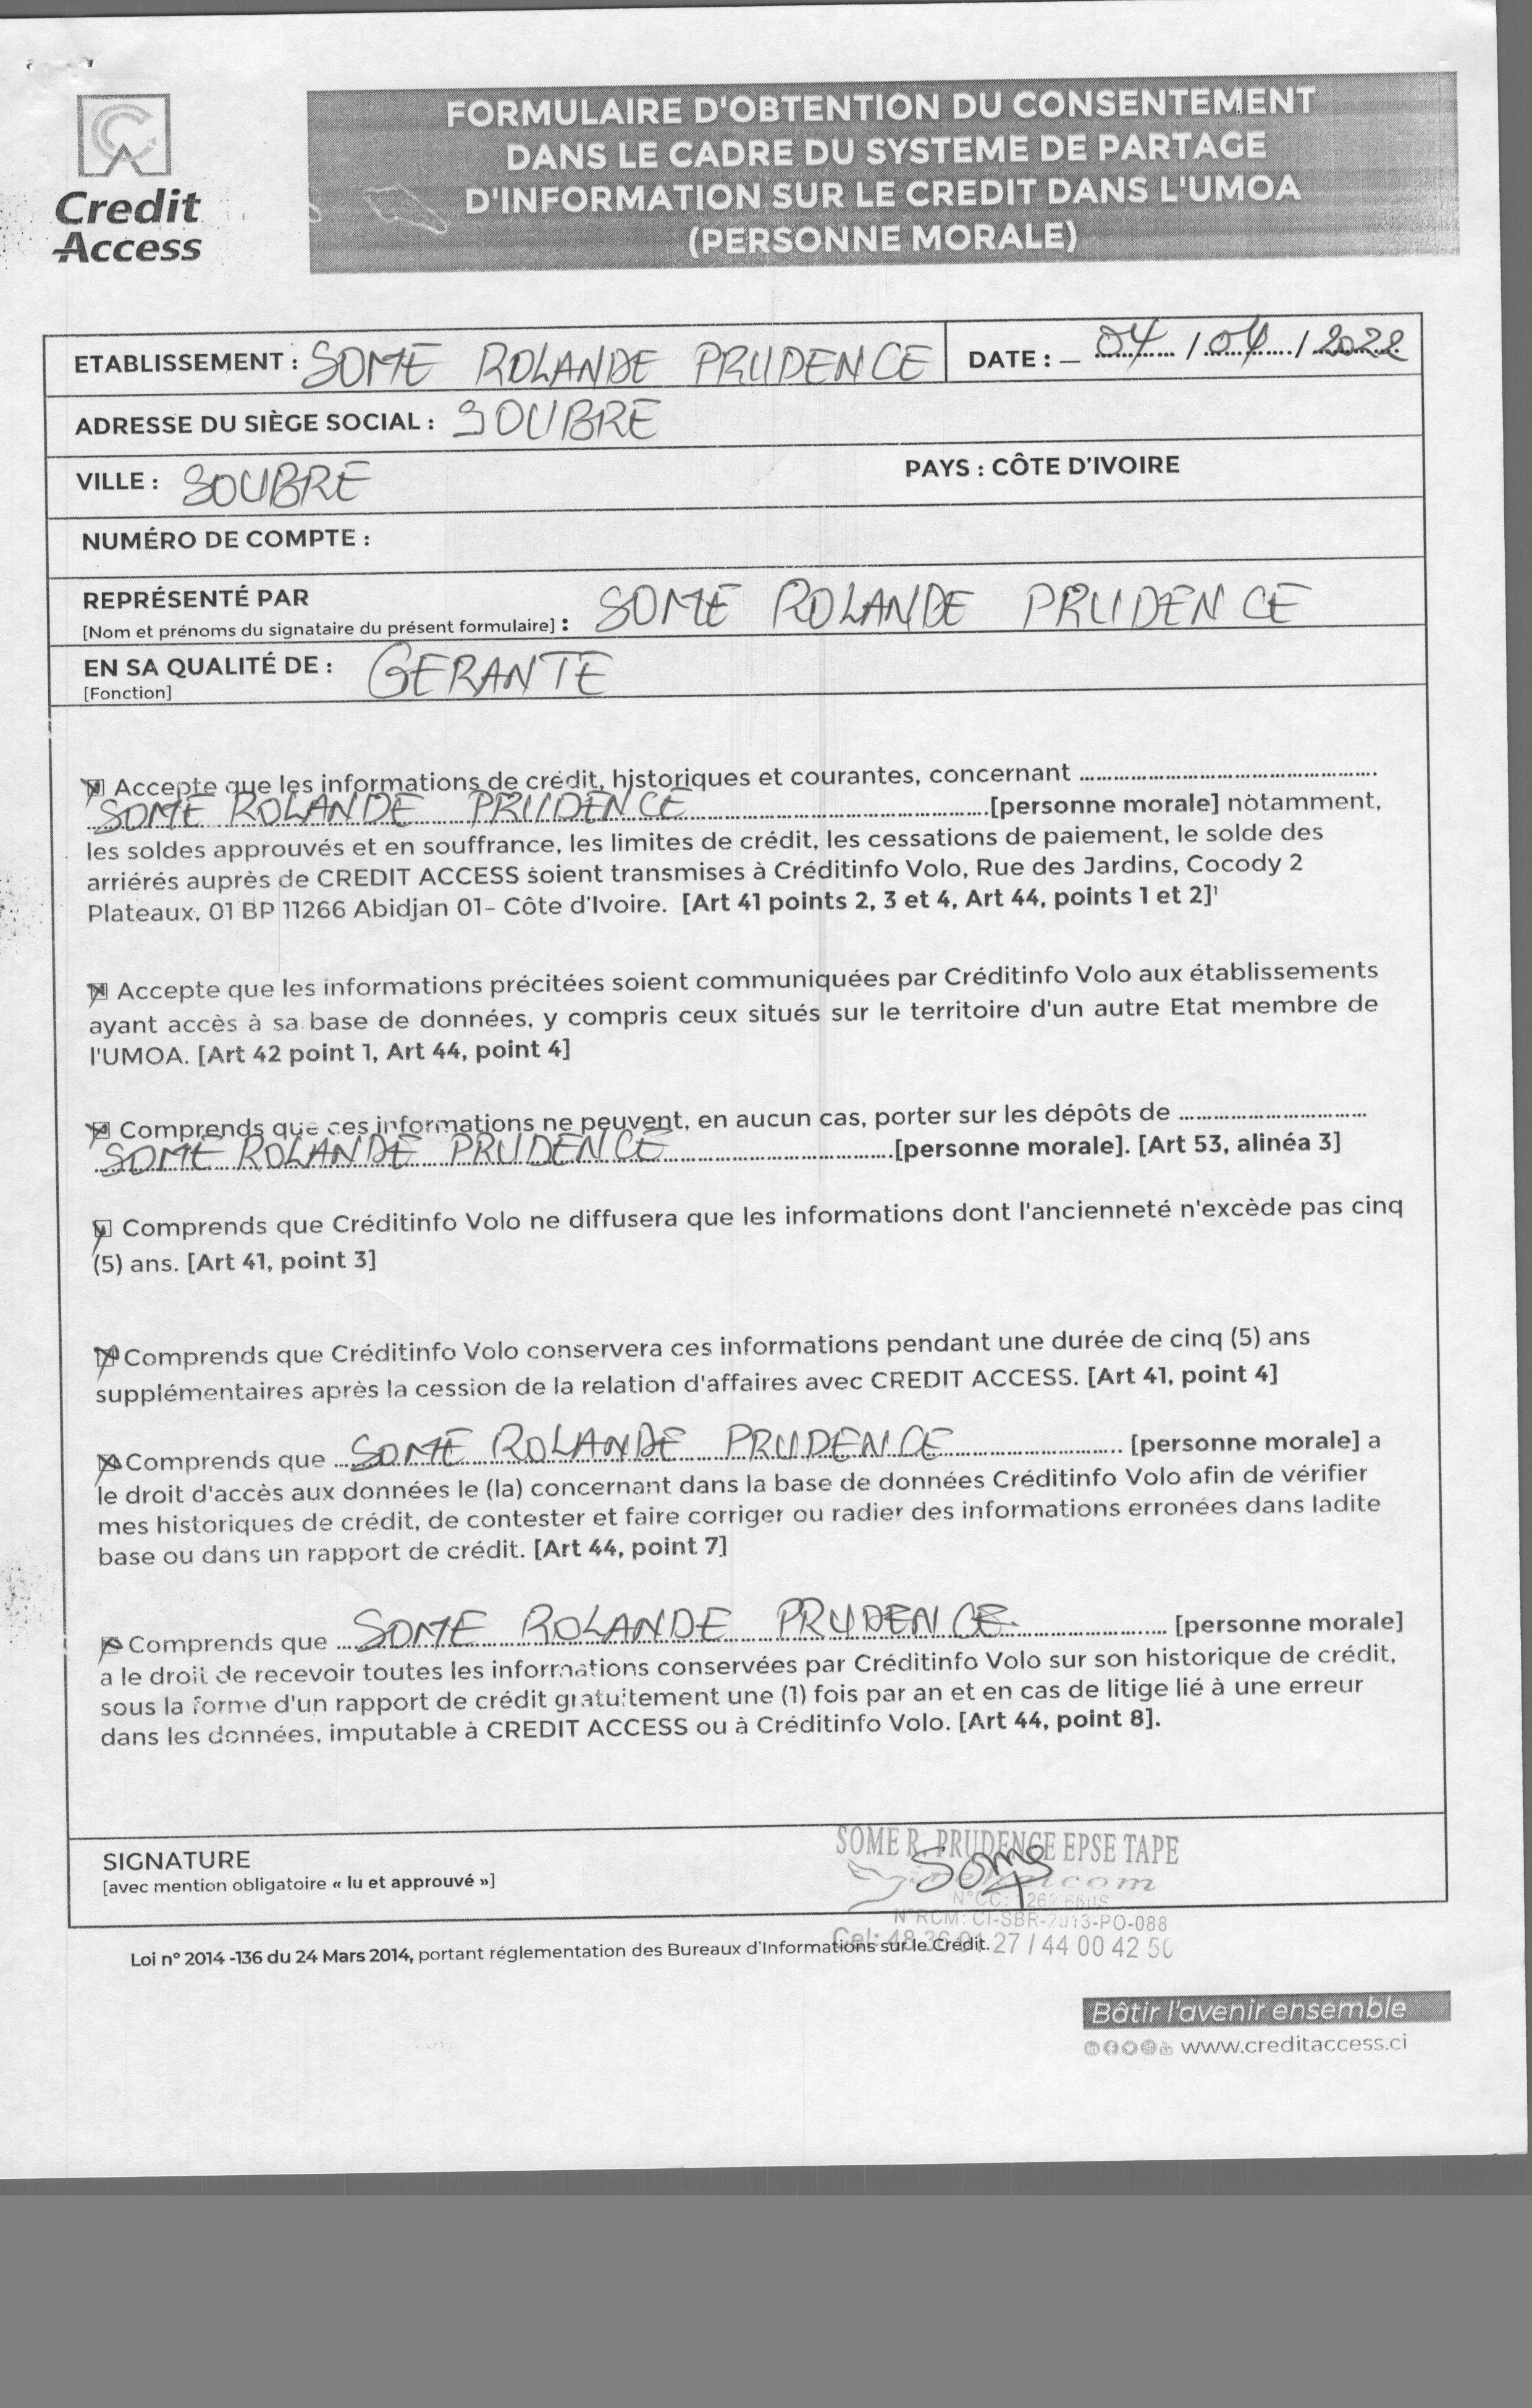 Credit
Access
FORMULAIRE D'OBTENTION DU CONSENTEMENT
DANS LE CADRE DU SYSTEME DE PARTAGE
D'INFORMATION SUR LE CREDIT DANS L'UMOA
(PERSONNE MORALE)
ETABLISSEMENT : SOME ROLANDE PRUDENCE
DATE : – 04 / 04 / 2022
ADRESSE DU SIÈGE SOCIAL : SOUBRE
VILLE : SOUBRE PAYS : CÔTE D'IVOIRE
NUMÉRO DE COMPTE :
REPRÉSENTÉ PAR
[Nom et prénoms du signataire du présent formulaire] : SOME ROLANDE PRUDENCE
EN SA QUALITÉ DE : GERANTE
[Fonction]
Accepte que les informations de crédit, historiques et courantes, concernant
SOME ROLANDE PRUDENCE [personne morale] notamment,
les soldes approuvés et en souffrance, les limites de crédit, les cessations de paiement, le solde des
arriérés auprès de CREDIT ACCESS soient transmises à Créditinfo Volo, Rue des Jardins, Cocody 2
Plateaux, 01 BP 11266 Abidjan 01- Côte d'Ivoire. [Art 41 points 2, 3 et 4, Art 44, points 1 et 2]¹
Accepte que les informations précitées soient communiquées par Créditinfo Volo aux établissements
ayant accès à sa base de données, y compris ceux situés sur le territoire d'un autre Etat membre de
l'UMOA. [Art 42 point 1, Art 44, point 4]
Comprends que ces informations ne peuvent, en aucun cas, porter sur les dépôts de
SOME ROLANDE PRUDENCE [personne morale]. [Art 53, alinéa 3]
Comprends que Créditinfo Volo ne diffusera que les informations dont l'ancienneté n'excède pas cinq
(5) ans. [Art 41, point 3]
Comprends que Créditinfo Volo conservera ces informations pendant une durée de cinq (5) ans
supplémentaires après la cession de la relation d'affaires avec CREDIT ACCESS. [Art 41, point 4]
Comprends que SOME ROLANDE PRUDENCE [personne morale] a
le droit d'accès aux données le (la) concernant dans la base de données Créditinfo Volo afin de vérifier
mes historiques de crédit, de contester et faire corriger ou radier des informations erronées dans ladite
base ou dans un rapport de crédit. [Art 44, point 7]
Comprends que SOME ROLANDE PRUDENCE [personne morale]
a le droit de recevoir toutes les informations conservées par Créditinfo Volo sur son historique de crédit,
sous la forme d'un rapport de crédit gratuitement une (1) fois par an et en cas de litige lié à une erreur
dans les données, imputable à CREDIT ACCESS ou à Créditinfo Volo. [Art 44, point 8].
SIGNATURE
[avec mention obligatoire « lu et approuvé »]
SOME R. PRUDENCE EPSE TAPE
Some
N°RCM: CI-SBR-2013-PO-088
Cel: 48 36 27 / 44 00 42 50
Loi n° 2014 -136 du 24 Mars 2014, portant réglementation des Bureaux d'Informations sur le Crédit.
Bâtir l'avenir ensemble
www.creditaccess.ci